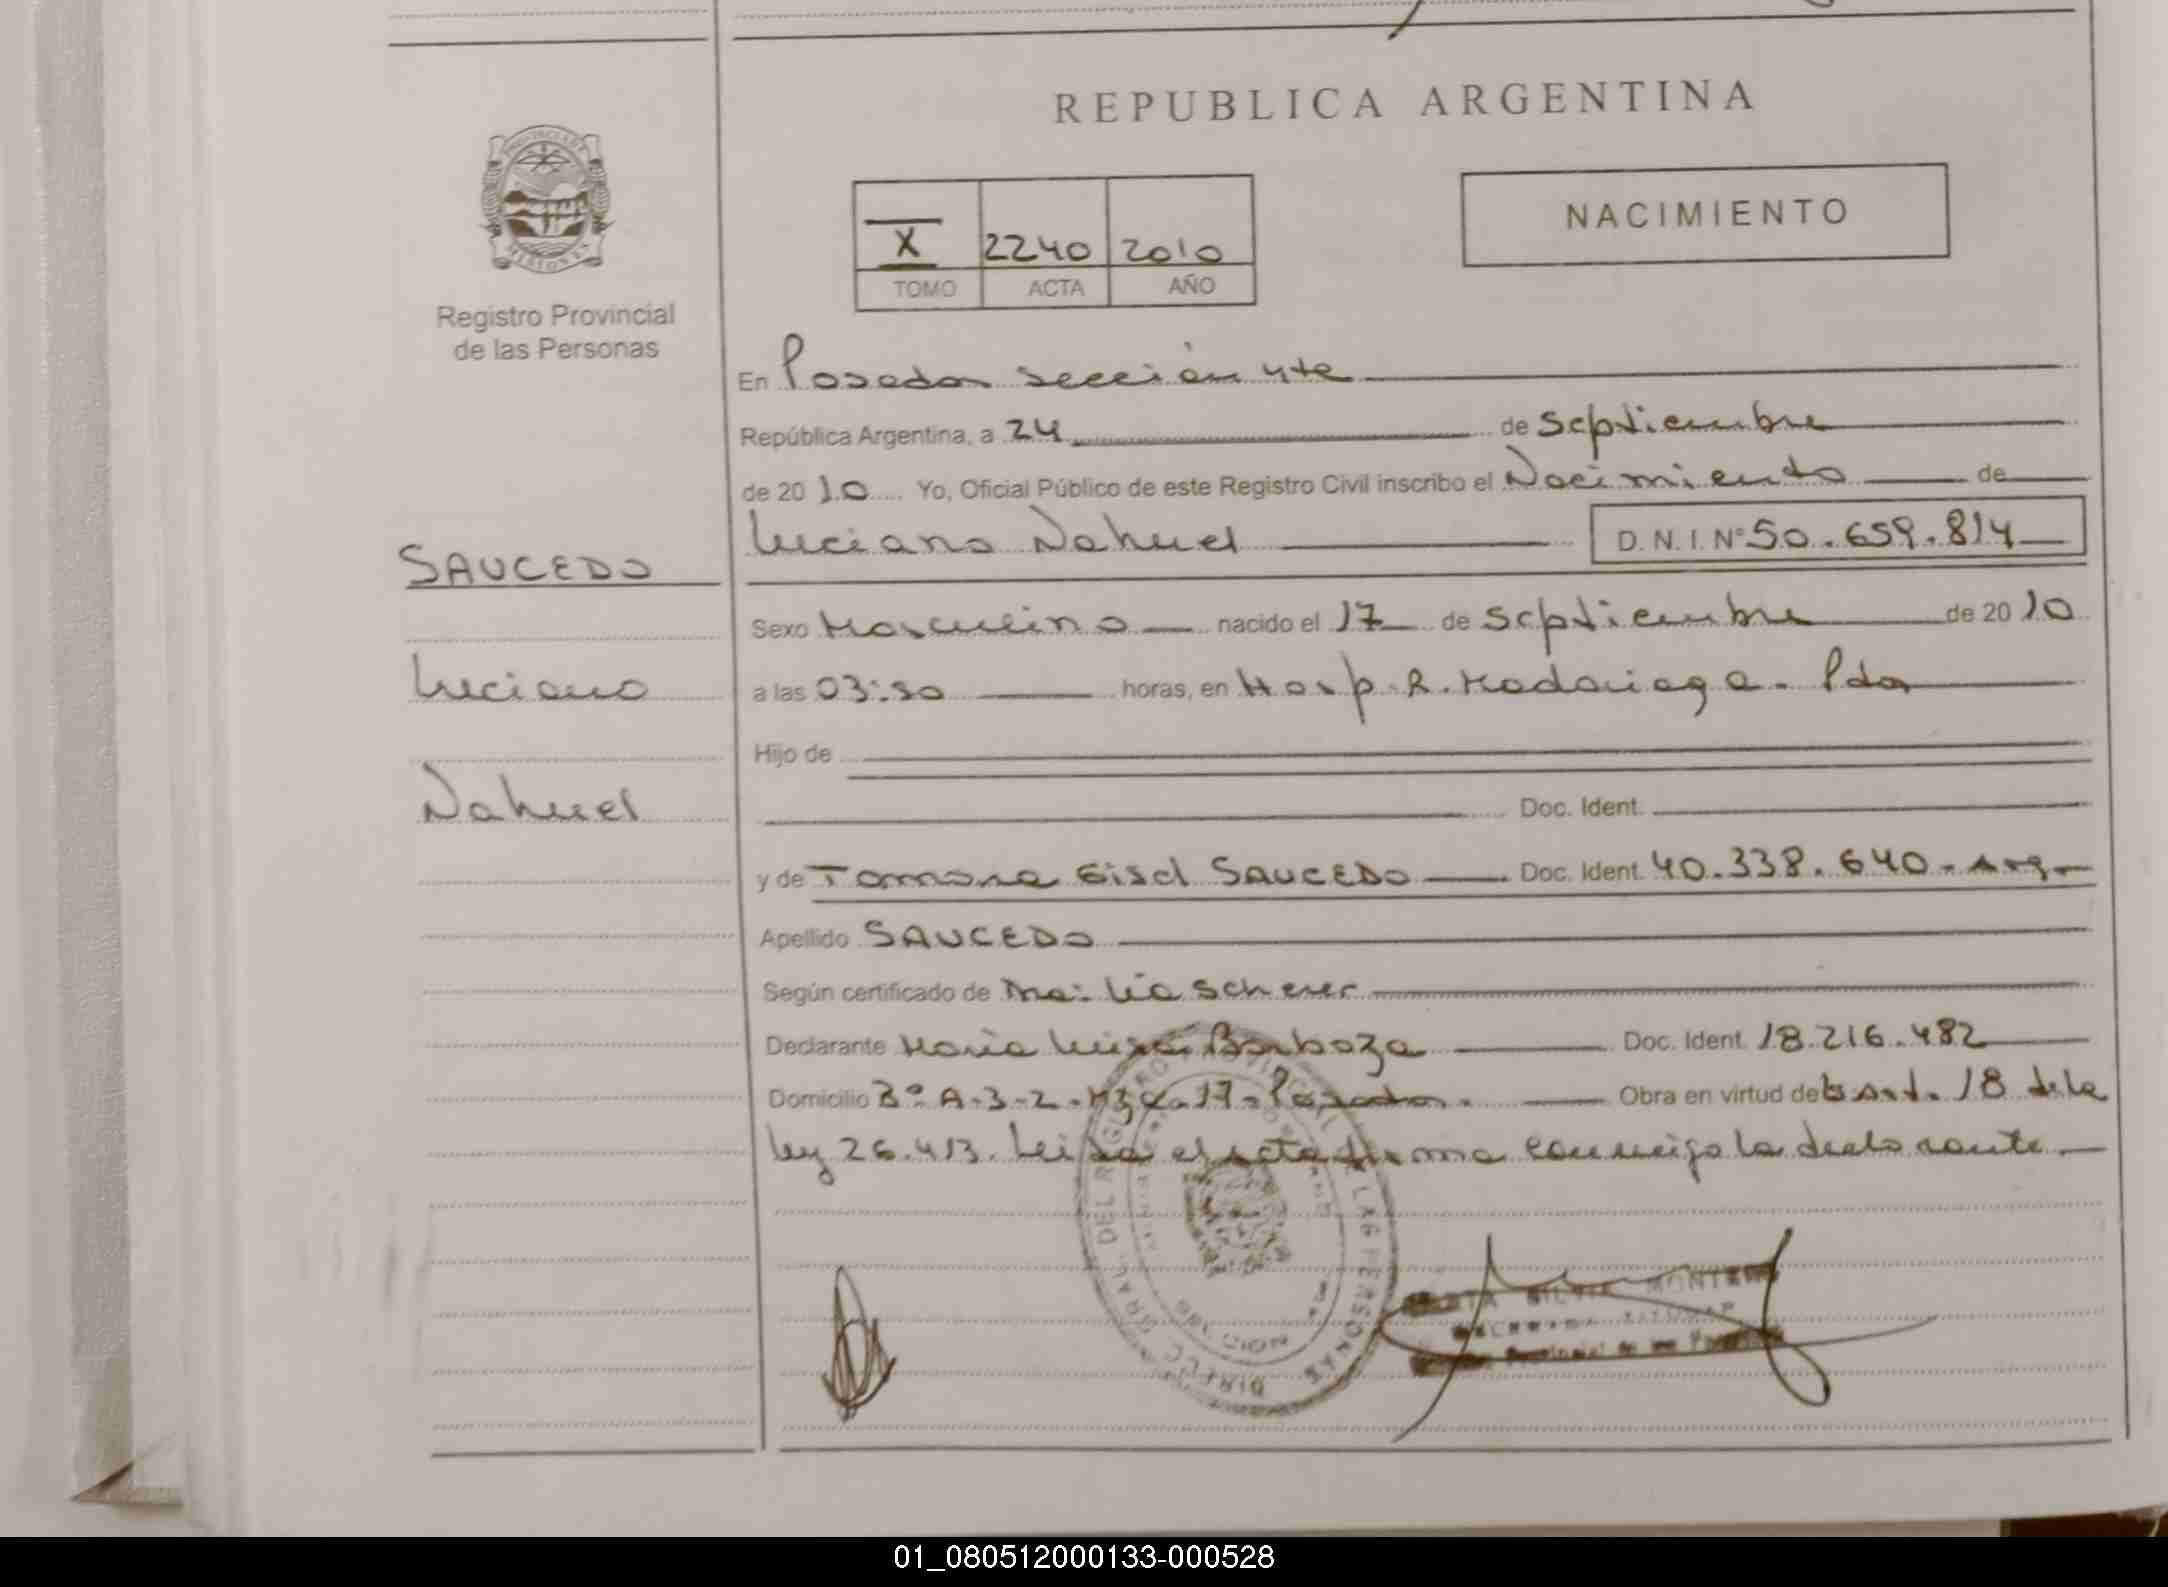 REPUBLICA ARGENTINA
PROVINCIA DE MISIONES
Registro Provincial
de las Personas
X 2240 2010
TOMO ACTA AÑO
NACIMIENTO
En Posadas sección 4ta
República Argentina, a 24 de Septiembre
de 2010 Yo, Oficial Público de este Registro Civil inscribo el Nacimiento de
SAUCEDO
Luciano Nahuel D.N.I. Nº 50.659.814
Sexo Masculino nacido el 17 de Septiembre de 2010
Luciano
a las 03: horas, en Hosp. R. Madariaga. Pdas
Hijo de
Nahuel
Doc. Ident.
y de Tamara Gisel SAUCEDO Doc. Ident. 40.338.640 - Arg.
Apellido SAUCEDO
Según certificado de Lia Scherer
Declarante María Luisa Barboza Doc. Ident. 18.216.482
Domicilio Bº A-3-2- 17- Posadas. Obra en virtud de Art. 18 de la
ley 26.413. Leida el acta firma conmigo la declarante.
DEL REGISTRO PROVINCIAL DE LAS PERSONAS
MONTE
Provincial de las
01_080512000133-000528